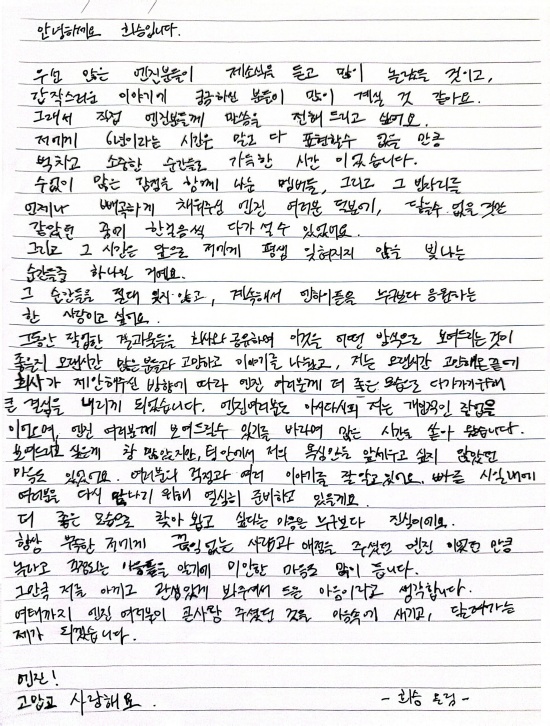 안녕하세요 희승입니다.
우선 많은 엔진분들이 제소식을 듣고 많이 놀랐을 것이고,
갑작스러운 이야기에 궁금하신 분들이 많이 계실 것 같아요.
그래서 직접 엔진분들께 말씀을 전해 드리고 싶어요.
저에게 6년이라는 시간은 말로 다 표현할수 없을 만큼
벅차고 소중한 순간들로 가득한 시간 이었습니다.
수없이 많은 감정을 함께 나눈 멤버들, 그리고 그 빈자리를
언제나 빼곡하게 채워주신 엔진 여러분 덕분에, 닿을수 없을 것만
같았던 꿈에 한걸음씩 다가 설 수 있었어요.
그리고 그 시간은 앞으로 저에게 평생 잊혀지지 않을 빛나는
순간들중 하나일 거예요.
그 순간들을 절대 잊지 않고, 계속해서 엔하이픈을 누구보다 응원하는
한 사람이고 싶어요.
그동안 작업한 결과물들을 회사와 공유하며 이것을 어떤 방식으로 보여드리는 것이
좋을지 오랜시간 많은 분들과 고민하고 이야기를 나눴고, 저는 오랜시간 고민해온 끝에
회사가 제안해주신 방향에 따라 엔진 여러분께 더 좋은 모습으로 다가가기위해
큰 결심을 내리게 되었습니다. 엔진여러분도 아시다시피 저는 개인적인 작업을
이어오며, 엔진 여러분께 보여드릴수 있기를 바라며 많은 시간을 쏟아 왔습니다.
보여드리고 싶은게 참 많았지만, 팀 안에서 저의 욕심만을 앞세우고 싶지 않았던
마음도 있었어요. 여러분의 걱정과 여러 이야기를 잘 알고 있어요. 빠른 시일내에
여러분을 다시 만나기 위해 열심히 준비하고 있을게요.
더 좋은 모습으로 찾아 뵙고 싶다는 마음은 누구보다 진심이에요.
항상 부족한 저에게 끊임없는 사랑과 애정을 주셨던 엔진 이었던 만큼
놀라고 걱정되는 마음들을 알기에 미안한 마음도 많이 듭니다.
그만큼 저를 아끼고 관심있게 봐주셔서 드는 마음이라고 생각합니다.
여태까지 엔진 여러분이 큰사랑 주셨던 것을 마음속에 새기고, 달려가는
제가 되겠습니다.
엔진!
고맙고 사랑해요. - 희승 올림 -